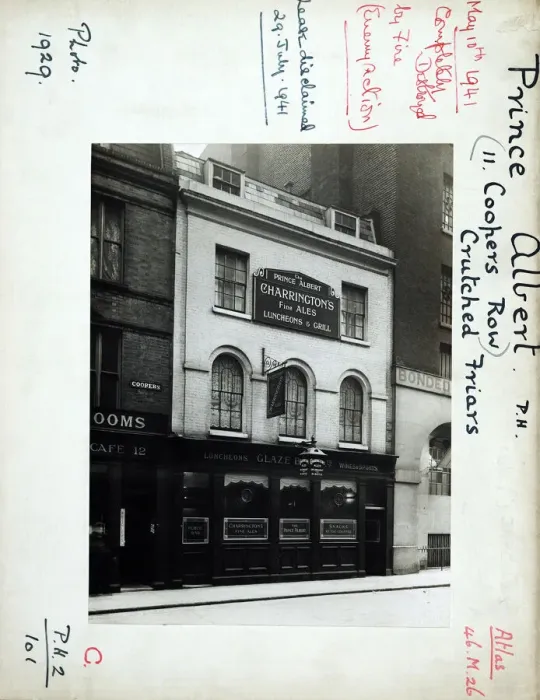 Prince Albert. P.H.
(11. Coopers Row)
Crutched Friars
May 10th 1941
Completely
Destroyed
by Fire
(Enemy Action)
Lease disclaimed
29. July. 1941
Photo.
1929.
The
PRINCE ALBERT
CHARRINGTON'S
FINE ALES
LUNCHEONS & GRILL
COOPERS
BONDED
OOMS
CAFE 12
LUNCHEONS
WINES & SPIRITS
CHARRINGTON'S
FINE ALES
Atlas
46.M.26
C.
P.H.2
101